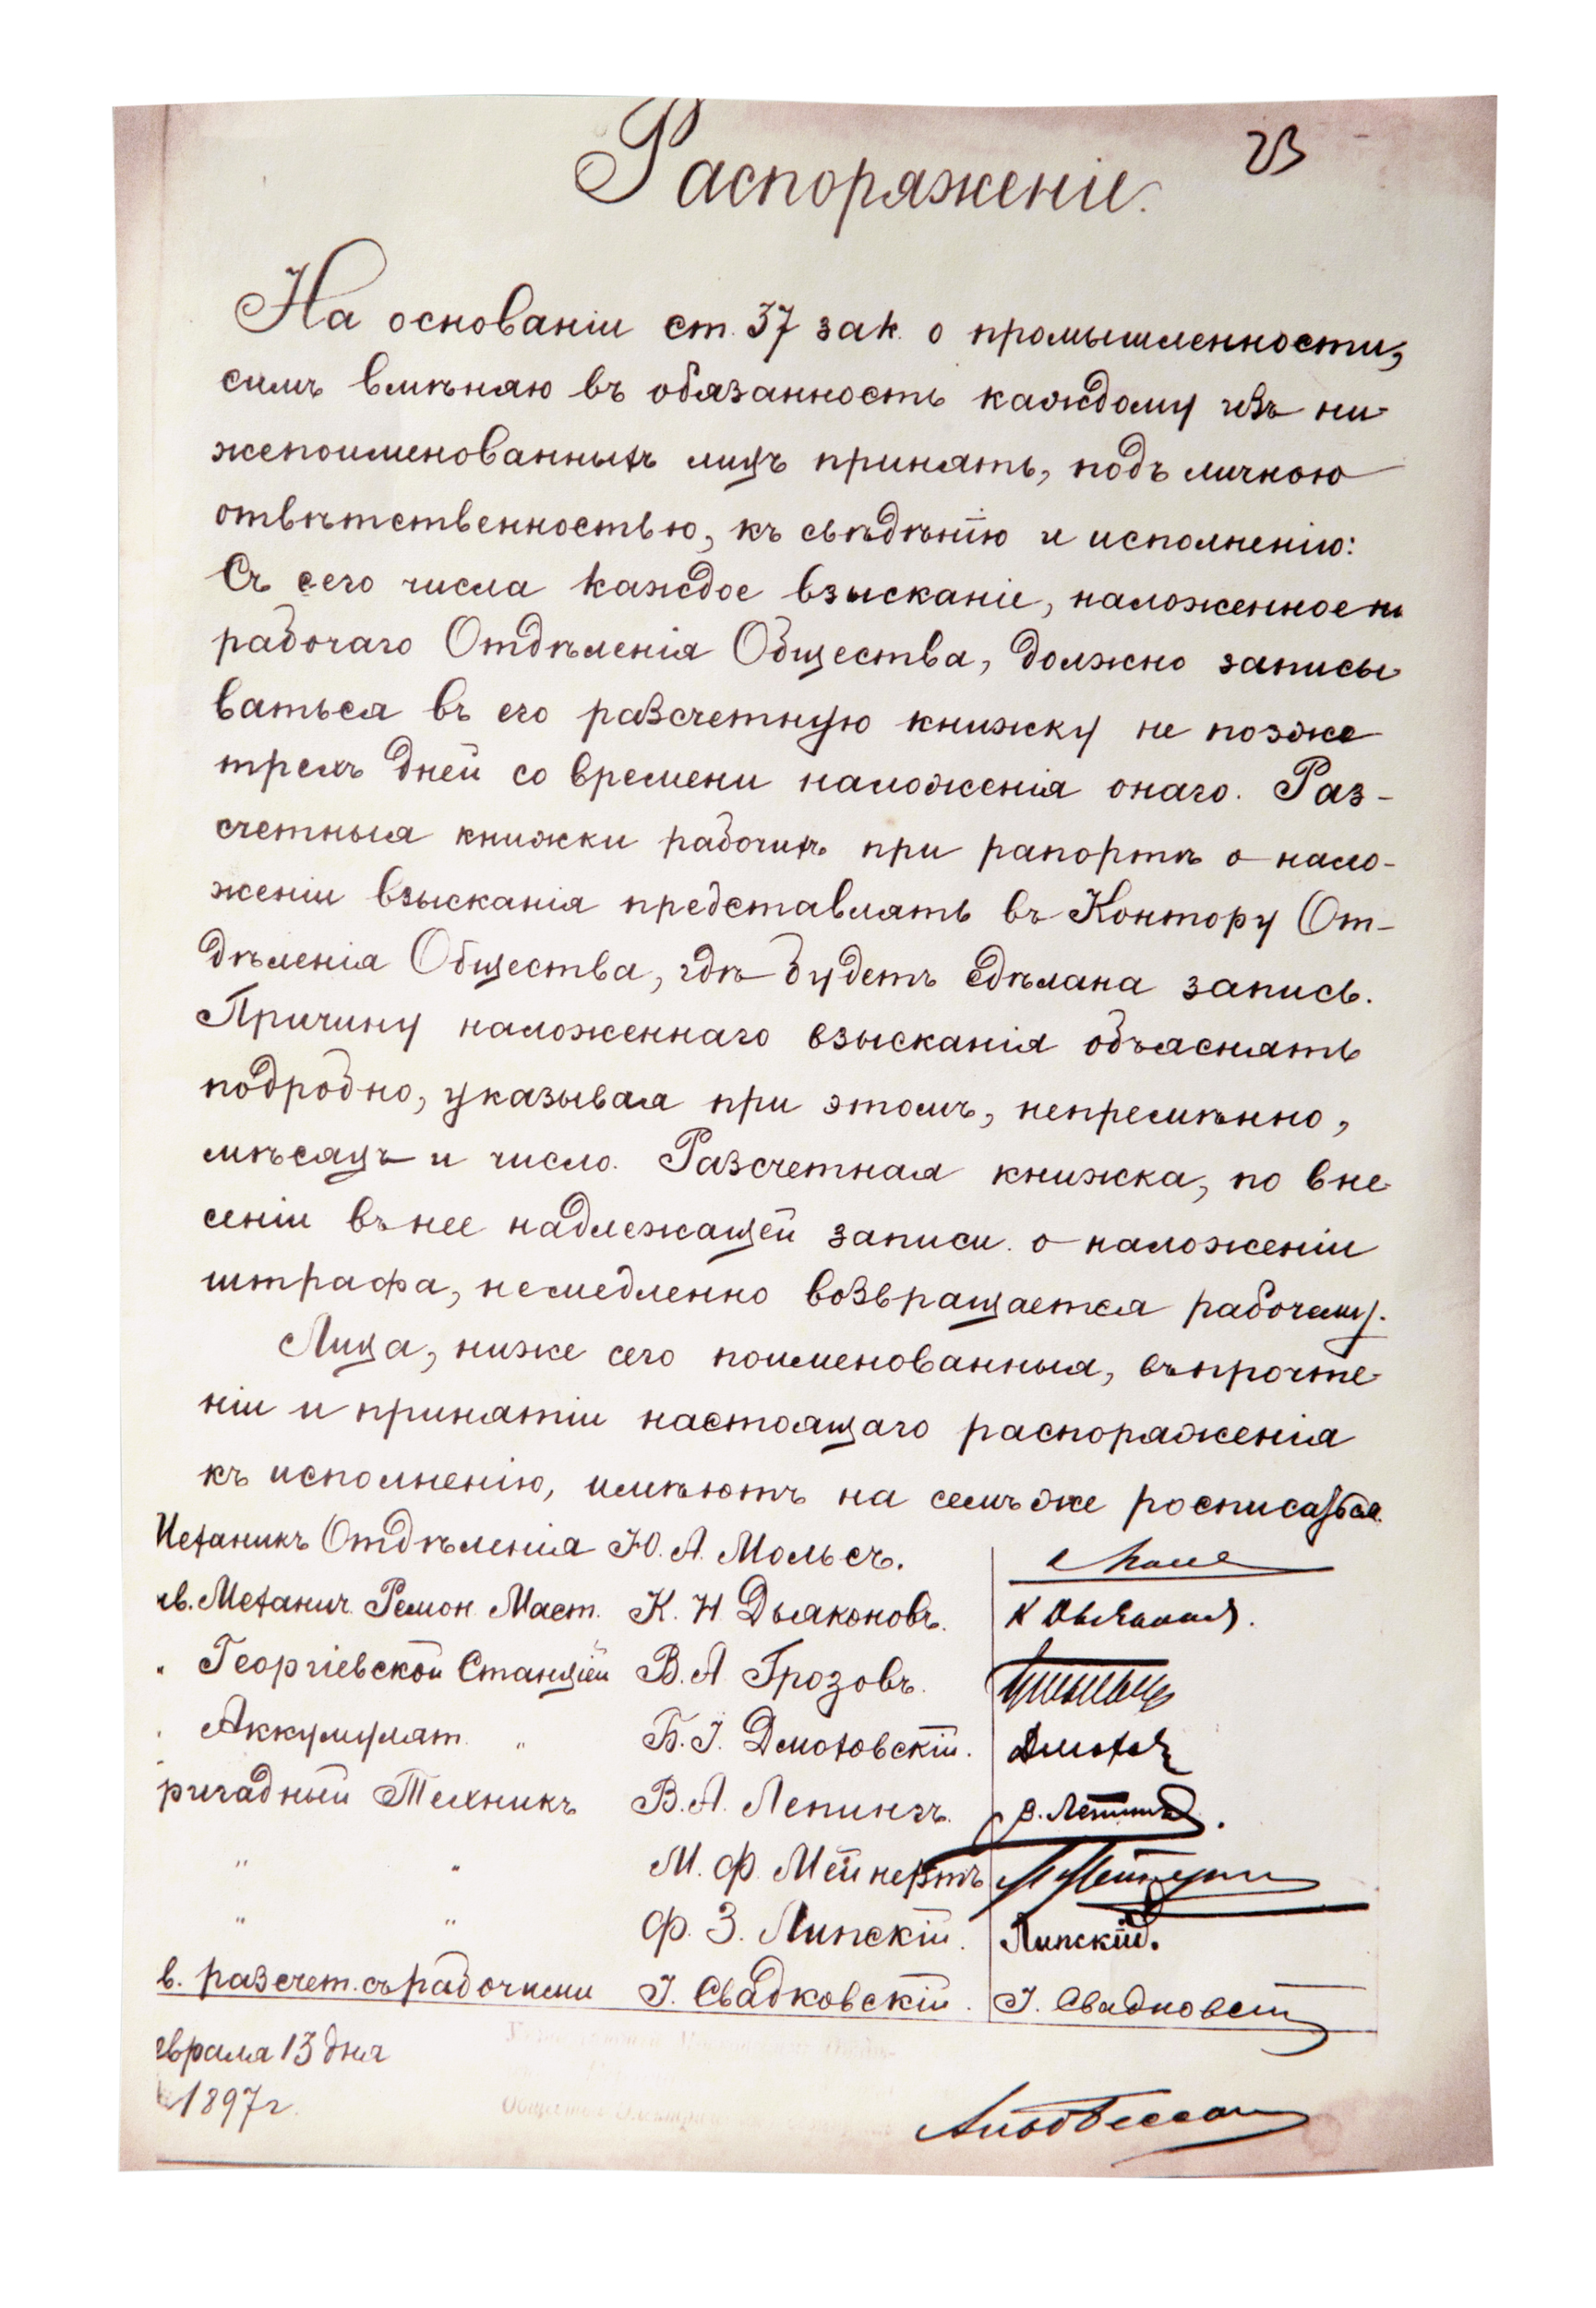 23
Распоряженіе.
На основаніи ст. 37 зак. о промышленности,
симъ вмѣняю въ обязанность каждому изъ ни-
жепоименованныхъ лицъ принять, подъ личною
отвѣтственностью, къ свѣдѣнію и исполненію:
Съ сего числа каждое взысканіе, наложенное на
рабочаго Отдѣленія Общества, должно записы-
ваться въ его разсчетную книжку не позже
трехъ дней со времени наложенія онаго. Раз-
счетныя книжки рабочихъ при рапортѣ о нало-
женіи взысканія представлять въ Контору От-
дѣленія Общества, гдѣ будетъ сдѣлана запись.
Причину наложеннаго взысканія объяснять
подробно, указывая при этомъ, непремѣнно,
мѣсяцъ и число. Разсчетная книжка, по вне-
сеніи въ нее надлежащей записи о наложеніи
штрафа, немедленно возвращается рабочему.
Лица, ниже сего поименованныя, въ прочте-
ніи и принятіи настоящаго распоряженія
къ исполненію, имѣютъ на семъ же росписаться.
Механикъ Отдѣленія Ю. А. Мольсъ.
зав. Механич. Ремон. Маст. К. Н. Дьяконовъ.
" Георгіевской Станціей В. А. Грозовъ.
" Аккумулят. " Б. І. Дмоховскій. Дмохов
ригадный Техникъ В. А. Лепингъ. В. Лепингъ
" " М. Ф. Мейнертъ М Мейнертъ
" " Ф. З. Липскій. Липскій.
в. разсчет. съ рабочими І. Свадковскій. І. Свадковскій
евраля 13 дня
1897 г.